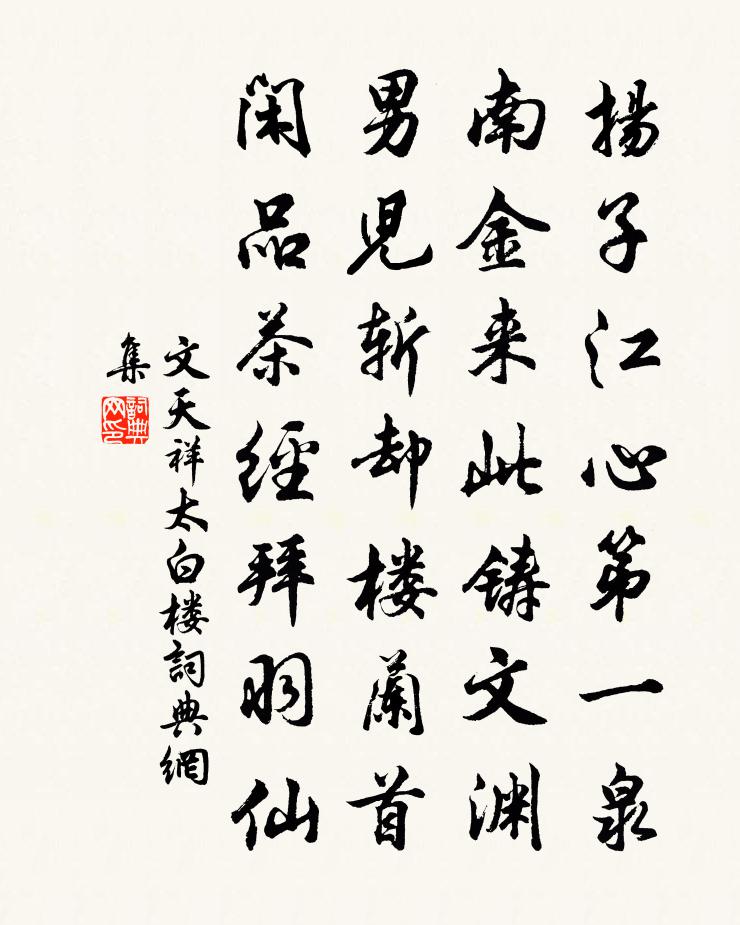 揚子江心第一泉
南金来此铸文渊
男児斩却楼蘭首
闲品茶經拜羽仙
文天祥太白楼詞典網
集
詞典
网印